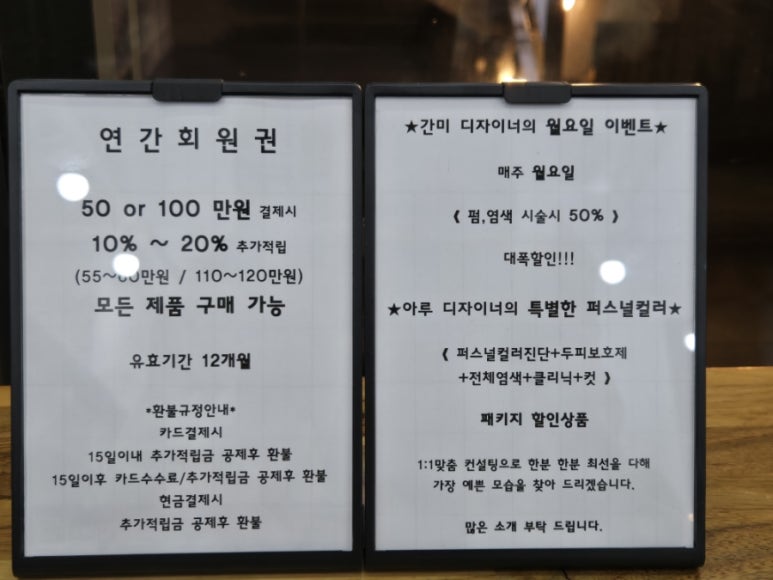 연간회원권
50 or 100 만원 결제시
10% ~ 20% 추가적립
(55~60만원 / 110~120만원)
모든 제품 구매 가능
유효기간 12개월
*환불규정안내*
카드결제시
15일이내 추가적립금 공제후 환불
15일이후 카드수수료/추가적립금 공제후 환불
현금결제시
추가적립금 공제후 환불
★간미 디자이너의 월요일 이벤트★
매주 월요일
《 펌,염색 시술시 50% 》
대폭할인!!!
★아루 디자이너의 특별한 퍼스널컬러★
《 퍼스널컬러진단+두피보호제
+전체염색+클리닉+컷 》
패키지 할인상품
1:1맞춤 컨설팅으로 한분 한분 최선을 다해
가장 예쁜 모습을 찾아 드리겠습니다.
많은 소개 부탁 드립니다.